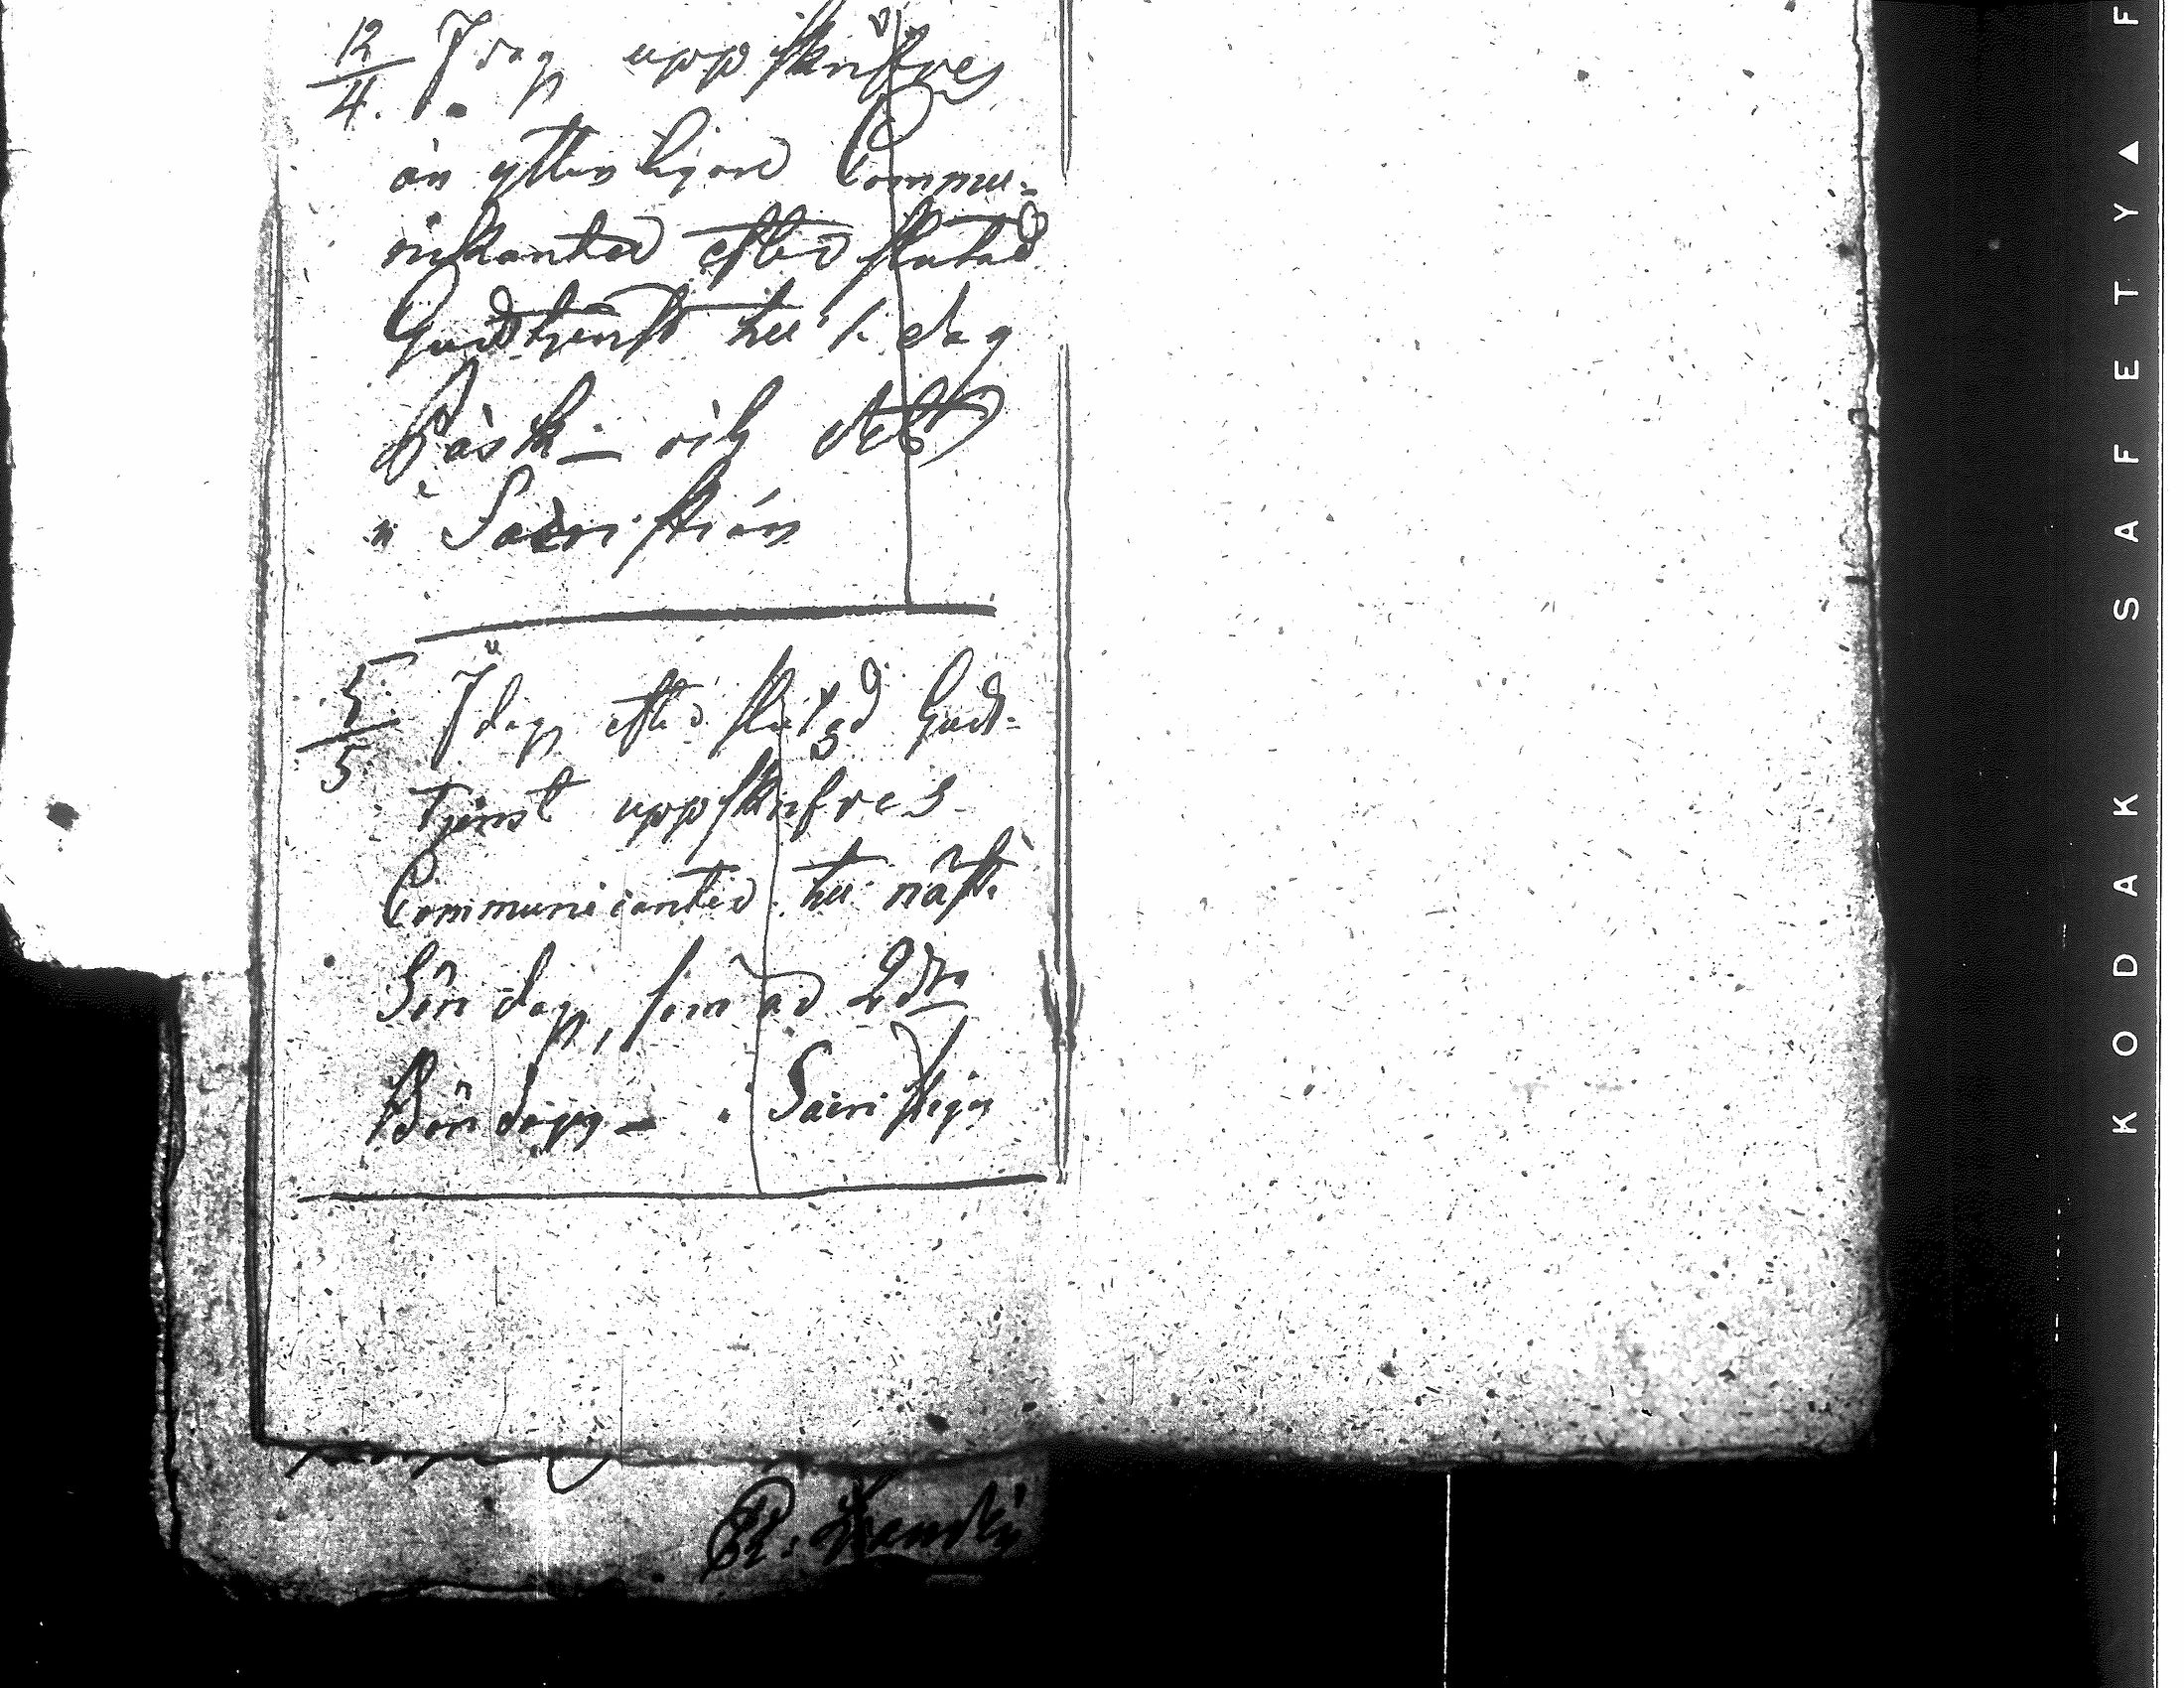 12/4. I dag uppskrifves
än ytterligare Commu-
nikanter efter slutad
Gudstjenst till 1. dag
Påsk – och det
i Sacristian
5/5 I dag efter slutad Guds-
tjenst uppskrifves
Communicanter till nästa
Söndag, som är 2dra
Böndagen – i Sacristijan
KODAK SAFETY ▲ F